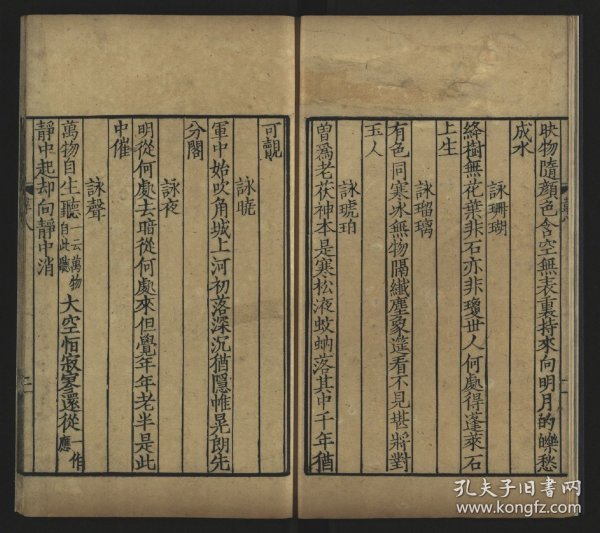 映物隨顔色含空無表裏持來向明月的皪愁
成水
詠珊瑚
絳樹無花葉非石亦非瓊世人何處得蓬萊石
上生
詠瑠璃
有色同寒冰無物隔纖塵象筵看不見堪將對
玉人
詠琥珀
曽爲老茯神本是寒松液蚊蚋落其中千年猶
可覿
詠曉
軍中始吹角城上河初落深沉猶隱帷晃朗先
分閣
詠夜
明從何處去暗從何處來但覺年年老半是此
中催
詠聲
萬物自生聽一云萬物自此聽大空恒寂寥還從一作應
靜中起却向靜中消
孔夫子旧书网
www.kongfz.com